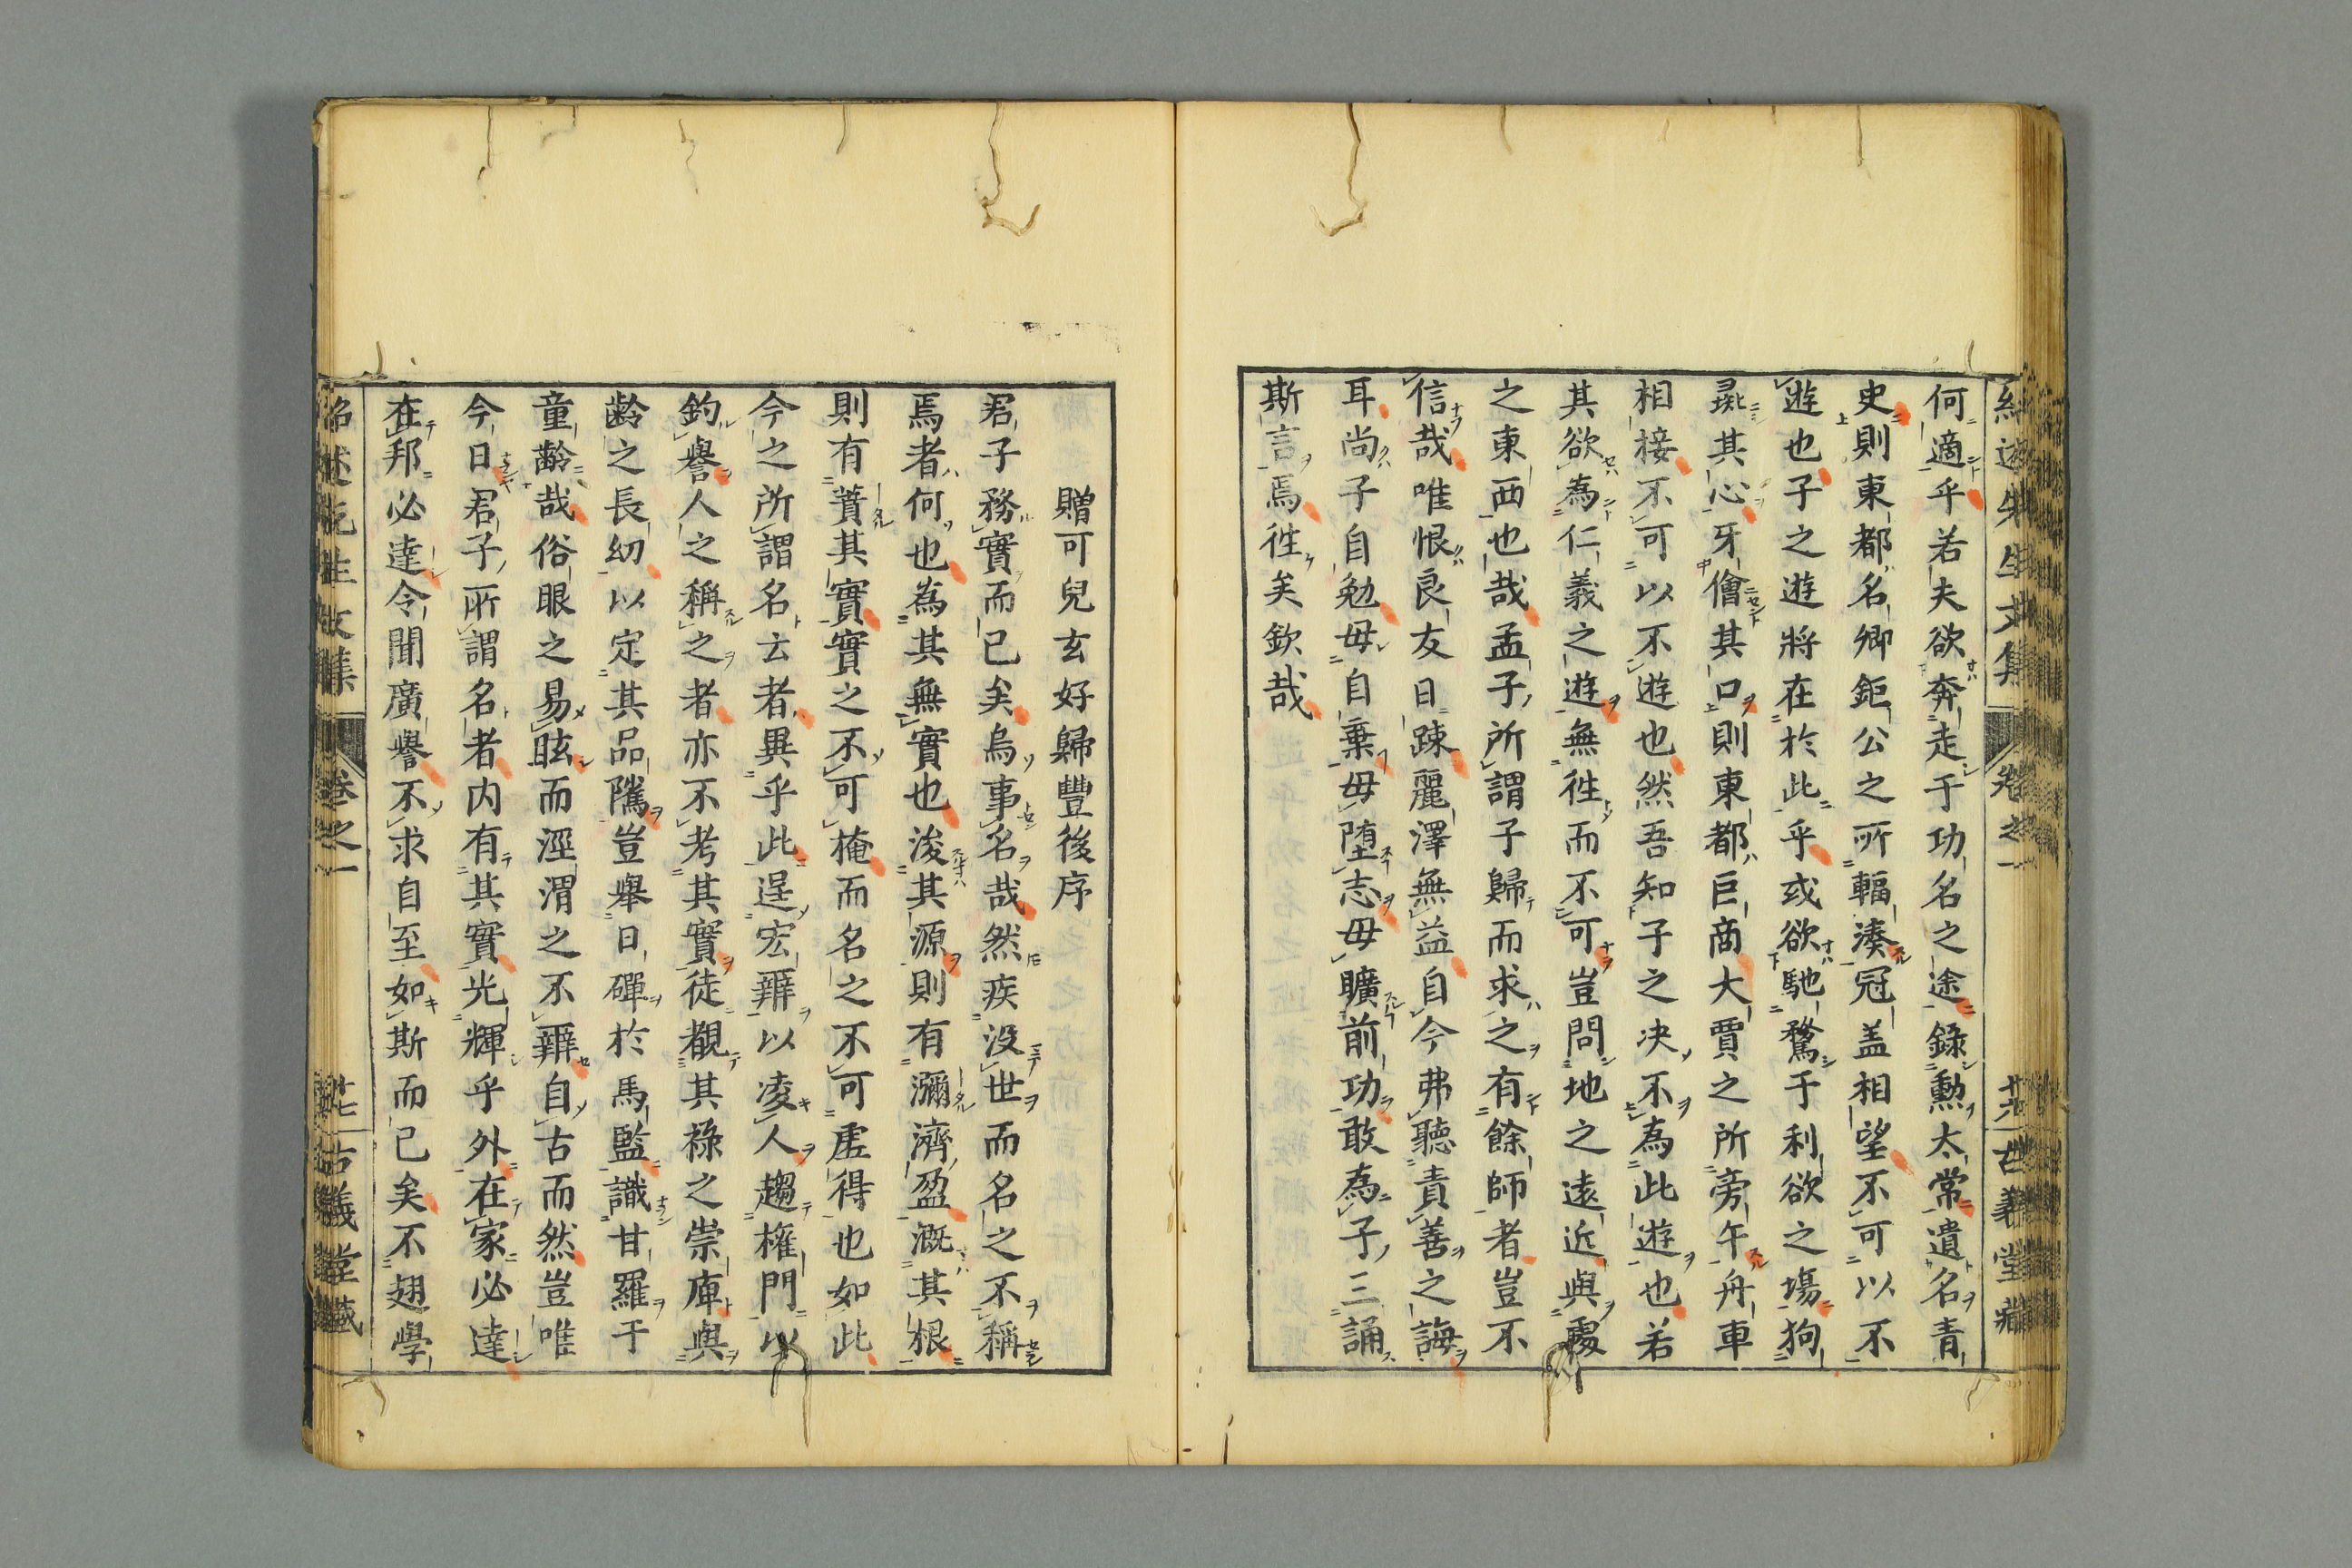 何適乎若夫欲奔走于功名之途錄勲太常遺名青
史則東都名卿鉅公之所輻湊冠盖相望不可以不
遊也子之遊將在於此乎或欲馳騖于利欲之塲狥
其心牙儈其口則東都巨商大賈之所旁午舟車
相接不可以不遊也然吾知子之决不為此遊也若
其欲為仁義之遊無徃而不可豈問地之遠近與處
之東西也哉孟子所謂子歸而求之有餘師者豈不
信哉唯恨良友日踈麗澤無益自今弗聽責善之誨
耳尚子自勉毋自棄毋堕志毋曠前功敢為子三誦
斯言焉徃矣欽哉
贈可兒玄好歸豐後序
君子務實而已矣烏事名哉然疾没世而名之不稱
焉者何也為其無實也浚其源則有瀰濟盈溉其根
則有蕡其實實之不可掩而名之不可虚得也如此
今之所謂名云者異乎此逞宏辯以凌人趨權門以
釣譽人之稱之者亦不考其實徒觀其祿之崇庳與
齡之長幼以定其品隲豈舉日磾於馬監識甘羅于
童齡哉俗眼之易眩而涇渭之不辯自古而然豈唯
今日君子所謂名者内有其實光輝乎外在家必達
在邦必達令聞廣譽不求自至如斯而已矣不翅學
紹述先生文集 卷之一 廿六 古義堂藏
紹述先生文集 卷之一 廿七 古義堂藏